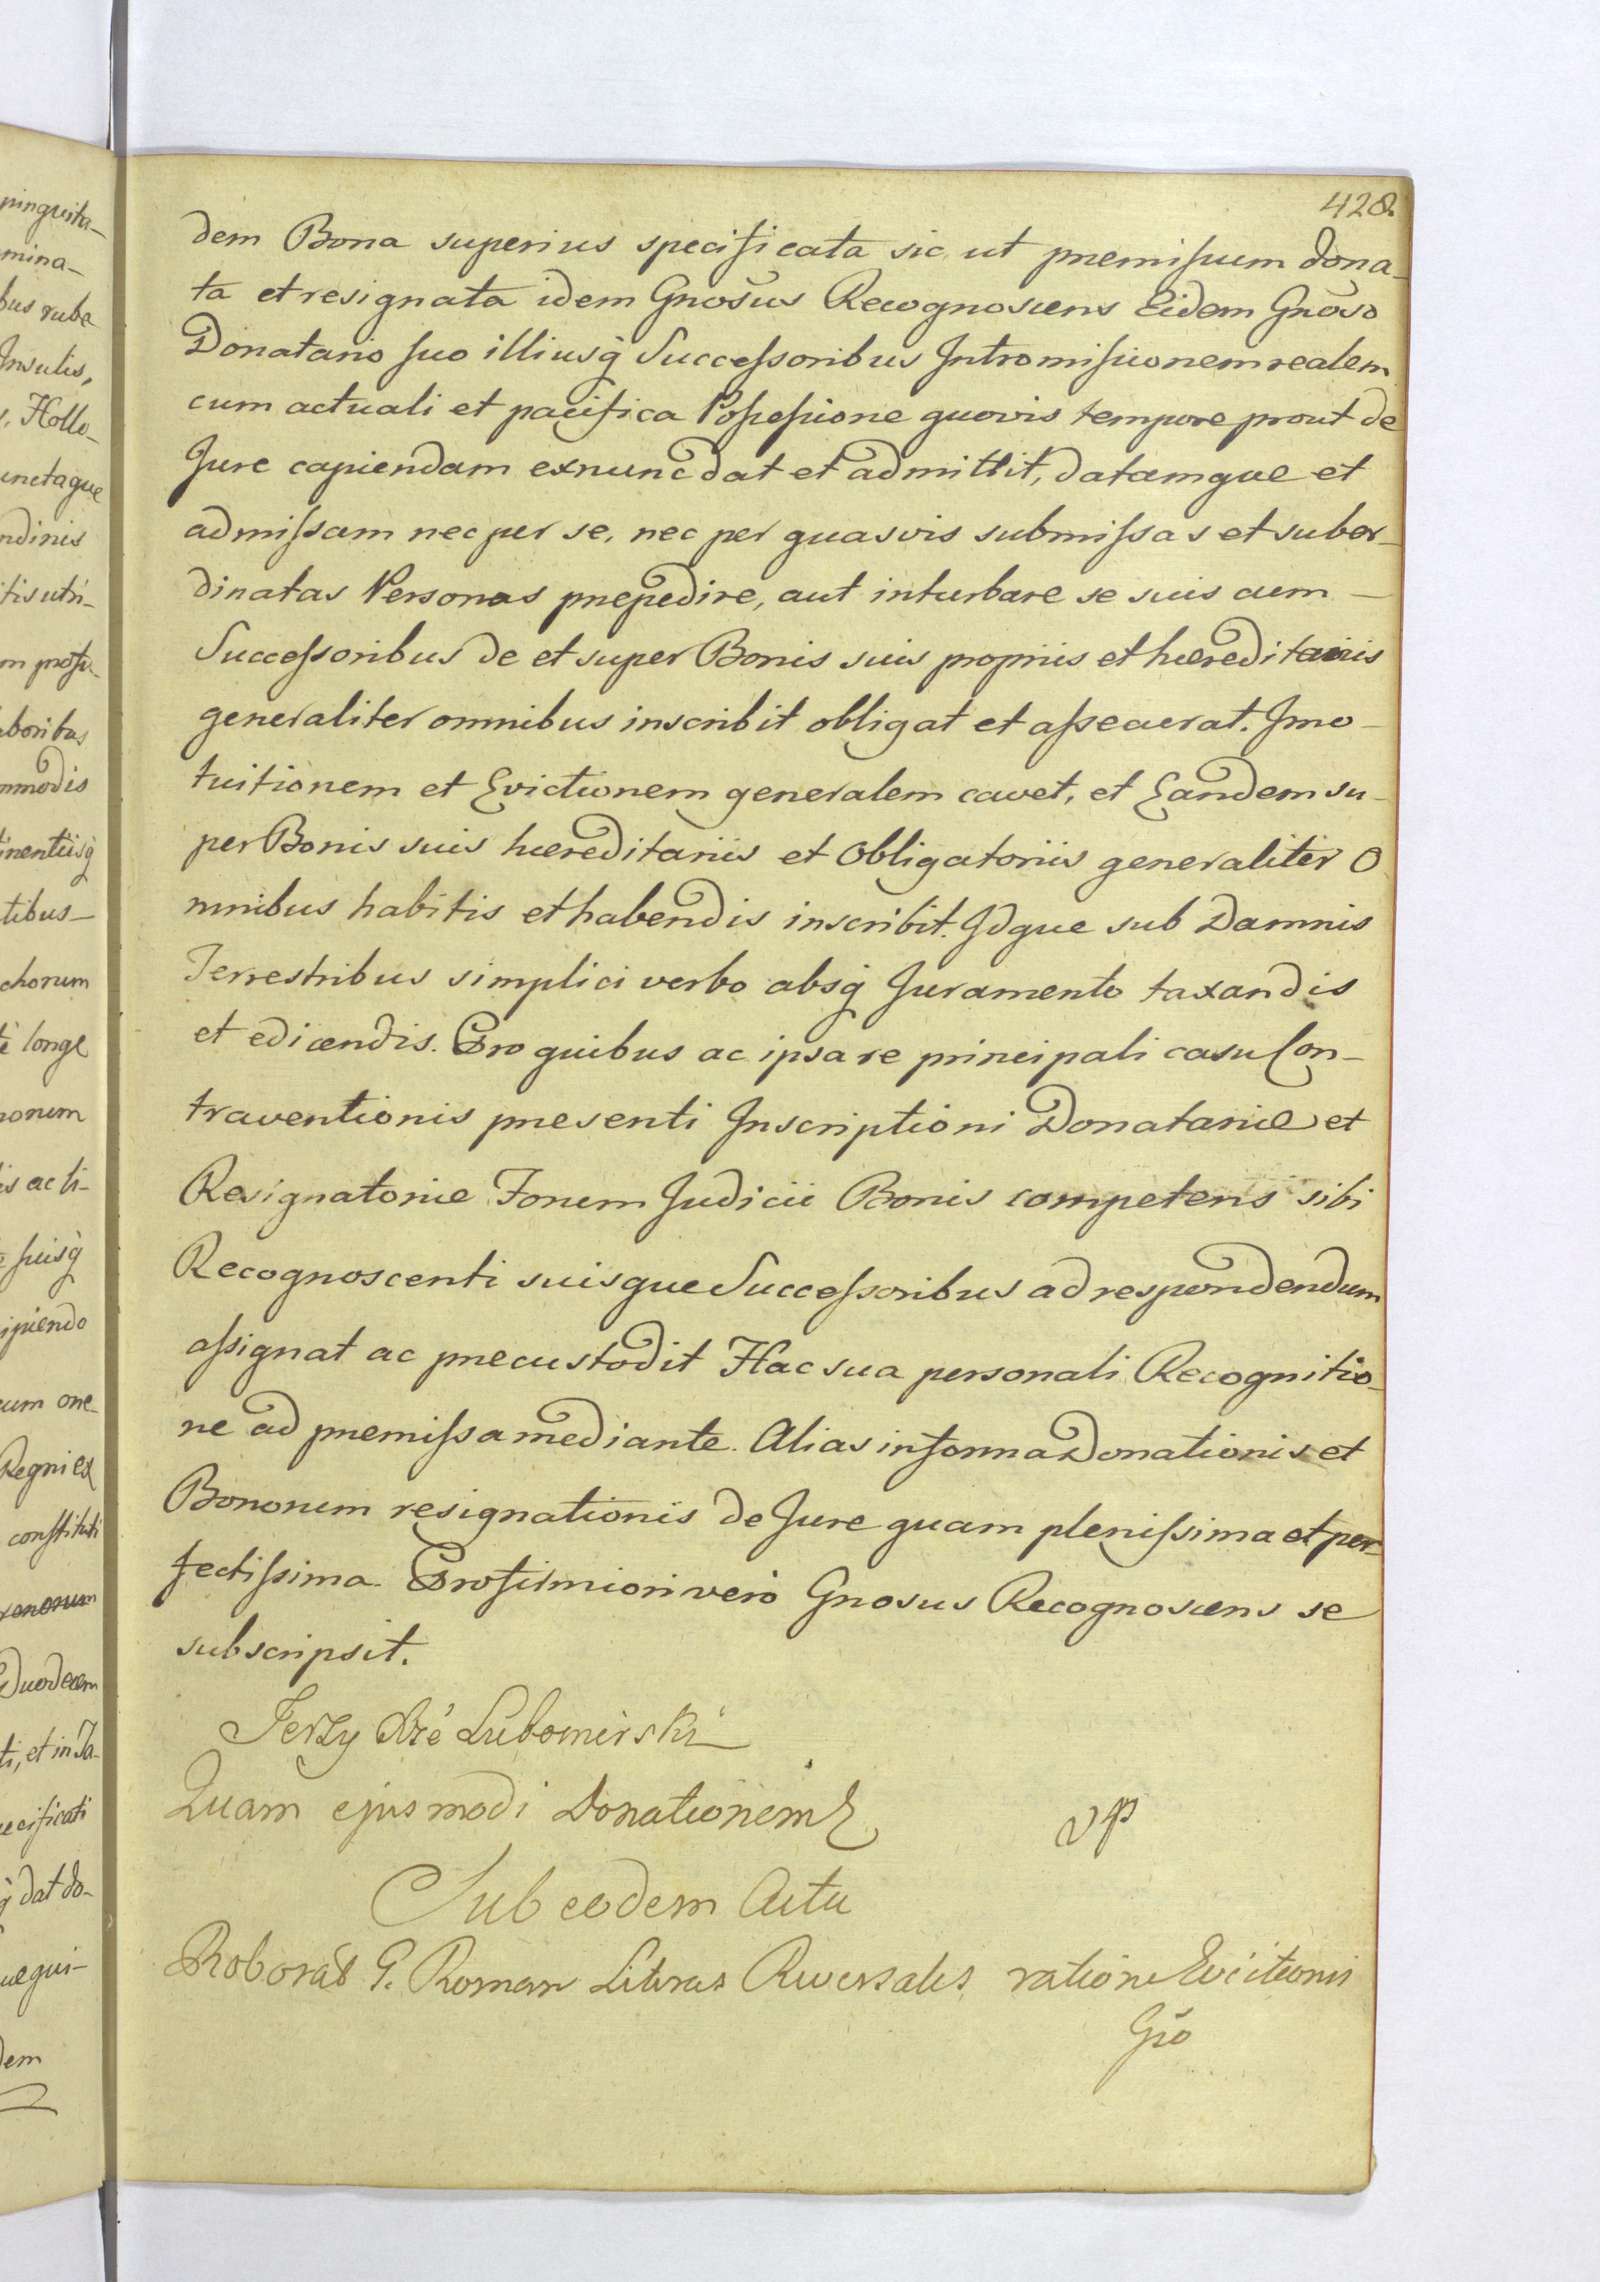 428.
dem Bona superius specificata sic ut premissum dona-
ta et resignata idem Gnosus Recognoscens Eidem Gnoso
Donatario suo illiusq Successoribus Intromissionem realem
cum actuali et pacifica Possessione quovis tempore prout de
Jure capiendam exnunc dat et admittit, datamque et
admissam nec per se, nec per quasvis submissas et subor-
dinatas Personas prepedire, aut inturbare se suis cum
Successoribus de et super Bonis suis propriis et hæreditariis
generaliter omnibus inscribit obligat et assecurat. Imo
tuitionem et Evictionem generalem cavet, et Eandem su-
per Bonis suis hæreditariis et Obligatoriis generaliter O
mnibus habitis et habendis inscribit. Idque sub Damnis
Terrestribus simplici verbo absq Juramento taxandis
et edicendis. Pro quibus ac ipsa re principali casu Con-
traventionis presenti Inscriptioni Donatariæ et
Resignatoriæ Forum Judicii Bonis competens sibi
Recognoscenti suisque Successoribus ad respondendum
assignat ac precustodit Hac sua personali Recognitio-
ne ad premissa mediante. Alias in forma Donationis et
Bonorum resignationis de Jure quam plenissima et per-
fectissima. Pro firmiori vero Gnosus Recognoscens se
subscripsit.
Jerzy Lubomirski
Quam ejusmodi Donationem
Sub eodem Actu
Roborat G. Roman Literas Reversales ratione Evictionis
Gso
pinguita-
mina-
bus rube
Insulis,
Hollo-
unctaque
ndinis
tis utri-
boribus
mmodis
tinentiisq
tibus-
chorum
longe
norum
is ac li-
suisq
ipiendo
cum one-
Regni ex
constituti
Duodecem
ti, et in Ta-
ecificati
q dat do-
ue qui-
dem